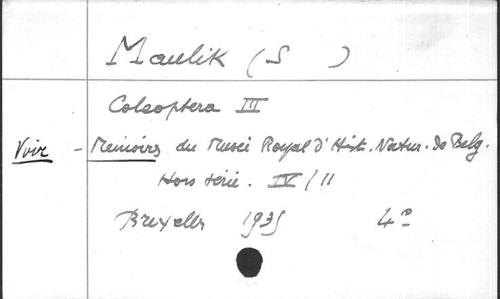 Maulik (S )
Coleoptera III
Voir - Memoires du Musée Royal d'Hist. Natur. de Belg.
Hors série. IV/11
Bruxelles 1935 4°